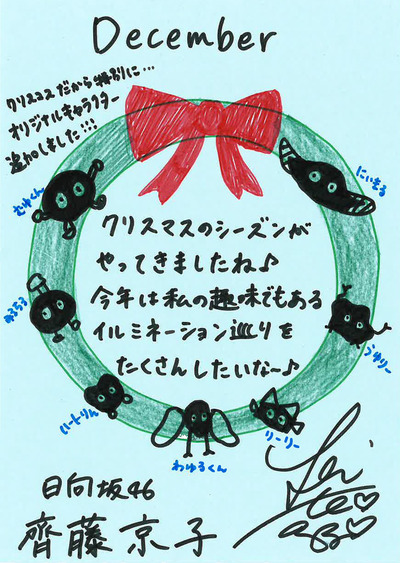 December
クリスマスだから特別に…
オリジナルキャラクター
追加しました!!!
にいまる
むゆくん
クリスマスのシーズンが
やってきましたね♪
今年は私の趣味でもある
イルミネーション巡りを
たくさんしたいな〜♪
みるちる
うゆりー
いーとりん
わゆるくん
りーりー
日向坂46
齊藤京子